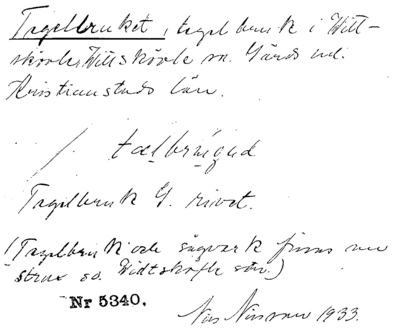 Tegelbruket, tegelbruk i Witt-
skövle, Wittskövle sn. Gärds hd.
Kristianstads län.
Tegelbruk. rivet.
(Tegelbruk och sågverk finns nu
strax so. Widtsköfle sön.)
Nr 5340.
Nils Nilsson 1933.